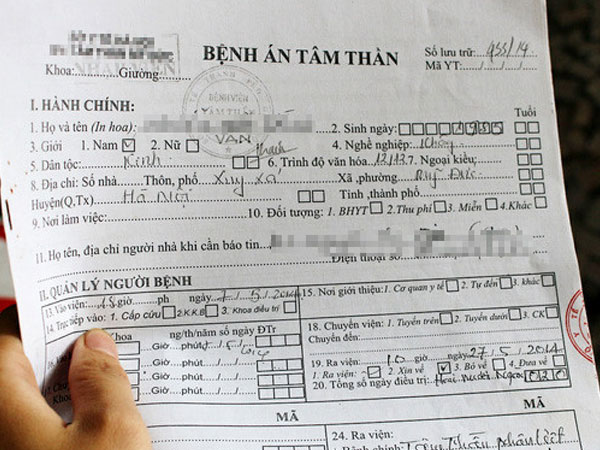 BỆNH ÁN TÂM THẦN
Số lưu trữ: 955/14
Mã YT:
Khoa: Giường:
BỆNH VIỆN
TÂM THẦN
I. HÀNH CHÍNH:
1. Họ và tên (In hoa): 2. Sinh ngày: Tuổi
3. Giới 1. Nam 2. Nữ 4. Nghề nghiệp: Không
5. Dân tộc: Kinh 6. Trình độ văn hóa: 12/12 7. Ngoại kiều:
8. Địa chỉ: Số nhà Thôn, phố Xuy Xá Xã, phường
Huyện(Q,Tx) Hà Nội Tỉnh, thành phố
9. Nơi làm việc: 10. Đối tượng: 1. BHYT 2. Thu phí 3. Miễn 4. Khác
11. Họ tên, địa chỉ người nhà khi cần báo tin
Điện thoại số
II. QUẢN LÝ NGƯỜI BỆNH
13. Vào viện: giờ ph ngày 7/5/2014 15. Nơi giới thiệu: 1. Cơ quan y tế 2. Tự đến 3. khác
14. Trực tiếp vào: 1. Cấp cứu 2.K.K.B 3. Khoa điều trị
Khoa ng/th/năm số ngày ĐTr
18. Chuyển viện: 1. Tuyến trên 2. Tuyến dưới 3. CK
Giờ phút
Chuyển đến:
Giờ phút
19. Ra viện: 10 giờ ngày 27/5/2014
Giờ phút
1. Ra viện: 2. Xin về 3. Bỏ về 4. Đưa về
Giờ phút
20. Tổng số ngày điều trị: Hai mươi ngày 020
MÃ MÃ
24. Ra viện:
Bệnh chính: Tâm thần phân liệt